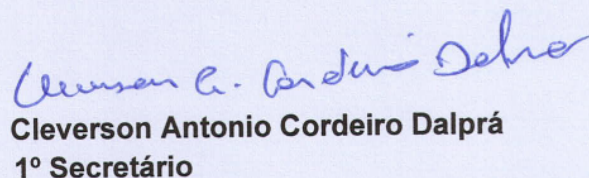 Cleverson A. Cordeiro Dalprá
Cleverson Antonio Cordeiro Dalprá
1º Secretário